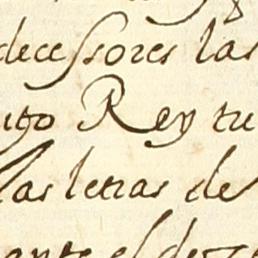 decessores las
igo Rey tu
las letras de
ante el de